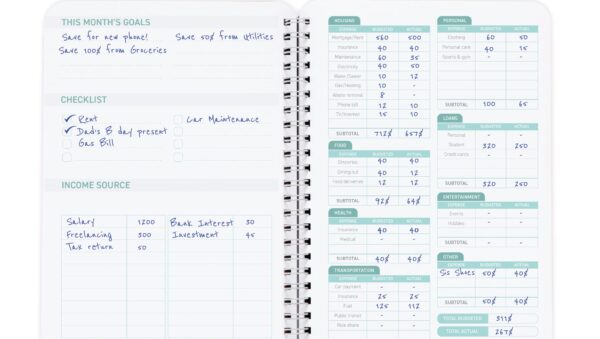 THIS MONTH'S GOALS
Save for new phone! Save 50$ from Utilities
Save 100$ from Groceries
CHECKLIST
Rent Car Maintenance
Dad's B day present
Gas Bill
INCOME SOURCE
Salary 1200 Bank Interest 50
Freelancing 500 Investment 45
Tax return 50
HOUSING
EXPENSE BUDGETED ACTUAL
Mortgage/Rent 560 500
Insurance 40 40
Maintenance 60 35
Electricity 40 50
Water/Sewer 10 12
Gas/Heating 10 -
Waste removal 8 -
Phone bill 12 10
TV/Internet 15 10
SUBTOTAL
FOOD
EXPENSE BUDGETED ACTUAL
Groceries 40 40
Dining out 40 12
Food deliveries 12 12
SUBTOTAL 92$ 64$
HEALTH
EXPENSE BUDGETED ACTUAL
Insurance 40 40
Medical - -
SUBTOTAL 40$ 40$
TRANSPORTATION
EXPENSE BUDGETED ACTUAL
Car payment - -
Insurance 25 25
Fuel 125 112
Public transit - -
Ride share - -
PERSONAL
EXPENSE BUDGETED ACTUAL
Clothing 60 50
Personal care 40 15
Sports & gym - -
SUBTOTAL 100 65
LOANS
EXPENSE BUDGETED ACTUAL
Personal - -
Student 320 250
Credit cards - -
SUBTOTAL 320 250
ENTERTAINMENT
EXPENSE BUDGETED ACTUAL
Events - -
Hobbies - -
SUBTOTAL - -
OTHER
EXPENSE BUDGETED ACTUAL
Sis Shoes 50$ 40$
SUBTOTAL 50$ 40$
TOTAL BUDGETED
TOTAL ACTUAL 267$